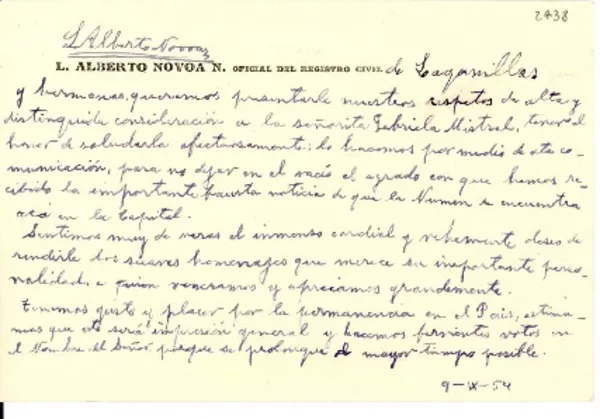 2438
L Alberto Novoa
L. ALBERTO NOVOA N. OFICIAL DEL REGISTRO CIVIL de Lagunillas
y hermanas, queremos presentarle nuestros respetos de alta y
distinguida consideración a la señorita Gabriela Mistral, tener el
honor de saludarla afectuosamente; lo hacemos por medio de esta co-
municación, para no dejar en el vacío el agrado con que hemos re-
cibido la importante fausta noticia de que la Numen se encuentra
acá en la Capital.
Sentimos muy de veras el inmenso cordial y vehemente deseo de
rendirle los suaves homenajes que merece su importante perso-
nalidad, a quien veneramos y apreciamos grandemente.
Tenemos gusto y placer por la permanencia en el País, estima-
mos que esto será impresión general y hacemos fervientes votos en
el Nombre del Señor porque se prolongue el mayor tiempo posible.
9-IX-54